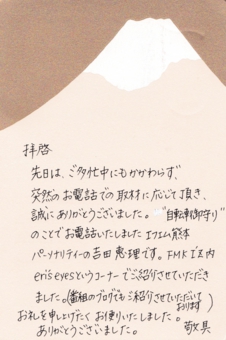 拝啓
先日は、ご多忙中にもかかわらず
突然のお電話での取材に応じて頂き、
誠にありがとうございました。"自転車御守り"
のことでお電話いたしました エフエム熊本
パーソナリティーの吉田恵理です。FMK
eris eyesというコーナーでご紹介させていただき
ました。(番組のブログでもご紹介させていただいて
おります)
おれを申し上げたくお便りいたしました。
ありがとうございました。 敬具